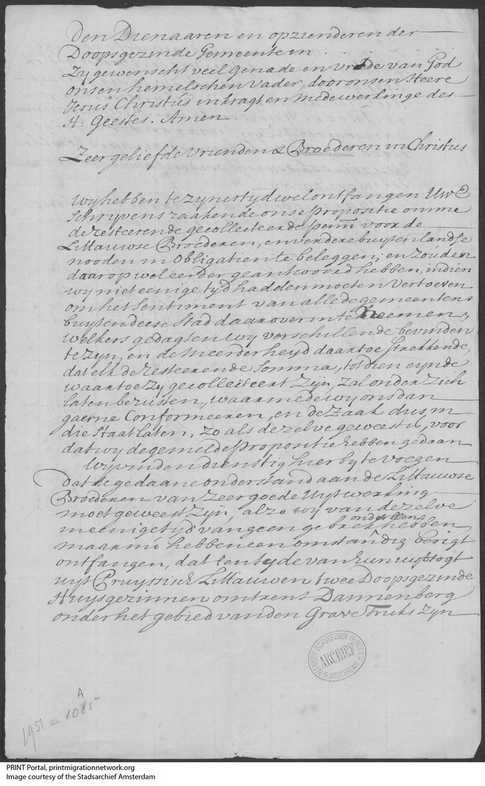 Den Dienaaren en opzienderen der
Doopsgezinde Gemeente in . . . .
Zy gewenscht veel Genade en Vrede van God
onsen hemelschen Vader, door onsen Heere
Jesus Christus in kragt en medewerkinge des
H. Geestes. Amen
Zeer geliefde Vrienden & Broederen in Christus
Wy hebben te zyner tyd wel ontfangen UwE
Schryvens raakende onse propositie omme
de resteerende gecollecteerde penn: voor de
Littauwse Broederen, en verdere buytenlandse
nooden in Obligatien te beleggen, en zouden
daar op wel eerder geantwoord hebben, indien
wy niet eenige tyd hadden moeten vertoeven
om het Sentiment van alle de gemeentens
buyten deese Stad daar over in te neemen,
welkers gedagten wy verschillende bevinden
te zyn, en de meerderheyd daar toe strekkende,
dat elk de resteerende Somma, tot dien eynde
waar toe zy gecollecteert zyn, zal onder zich
laten berusten, waar mede wy ons dan
gaerne Conformeeren, en de Zaak dus in
die Staat laten, zo als dezelve geweest is, voor
dat wy de gemelde propositie hebben gedaan
Wy vinden dienstig hier by te voegen
dat de gedaane onderstand aan de Littauwse
Broederen van zeer goede Uytwerking
moet geweest zyn, alzo wy van dezelve
meenige tyd van geen gebrek hebben
maar nu hebben een omstandig berigt
ontfangen, dat ten tyde van hun uyttogt
uyt Pruyssisch Littauwen twee Doopsgezinde
Huysgezinnen omtrent Dannenberg
onder het gebied van den Grave Truks zyn
ARCHIEF
A
1451 = 1085
PRINT Portal, printmigrationnetwork.org
Image courtesy of the Stadsarchief Amsterdam